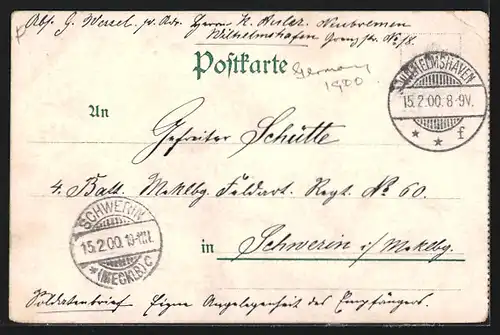 Abs. G. Wessel. p. Adr. Herrn K. Ansler. Neubremen
Wilhelmshafen Grenzstr. No 18.
Postkarte
Germany
1900
WILHELMSHAVEN
15.2.00.8-9V.
* * f
An
Gefreiter Schütte
4. Batt. Meklbg. Feldart. Regt. No 60.
SCHWERIN
15.2.00.
*(MECKLB)C
in Schwerin i/Meklbg.
Soldatenbrief Eigne Angelegenheit des Empfängers.